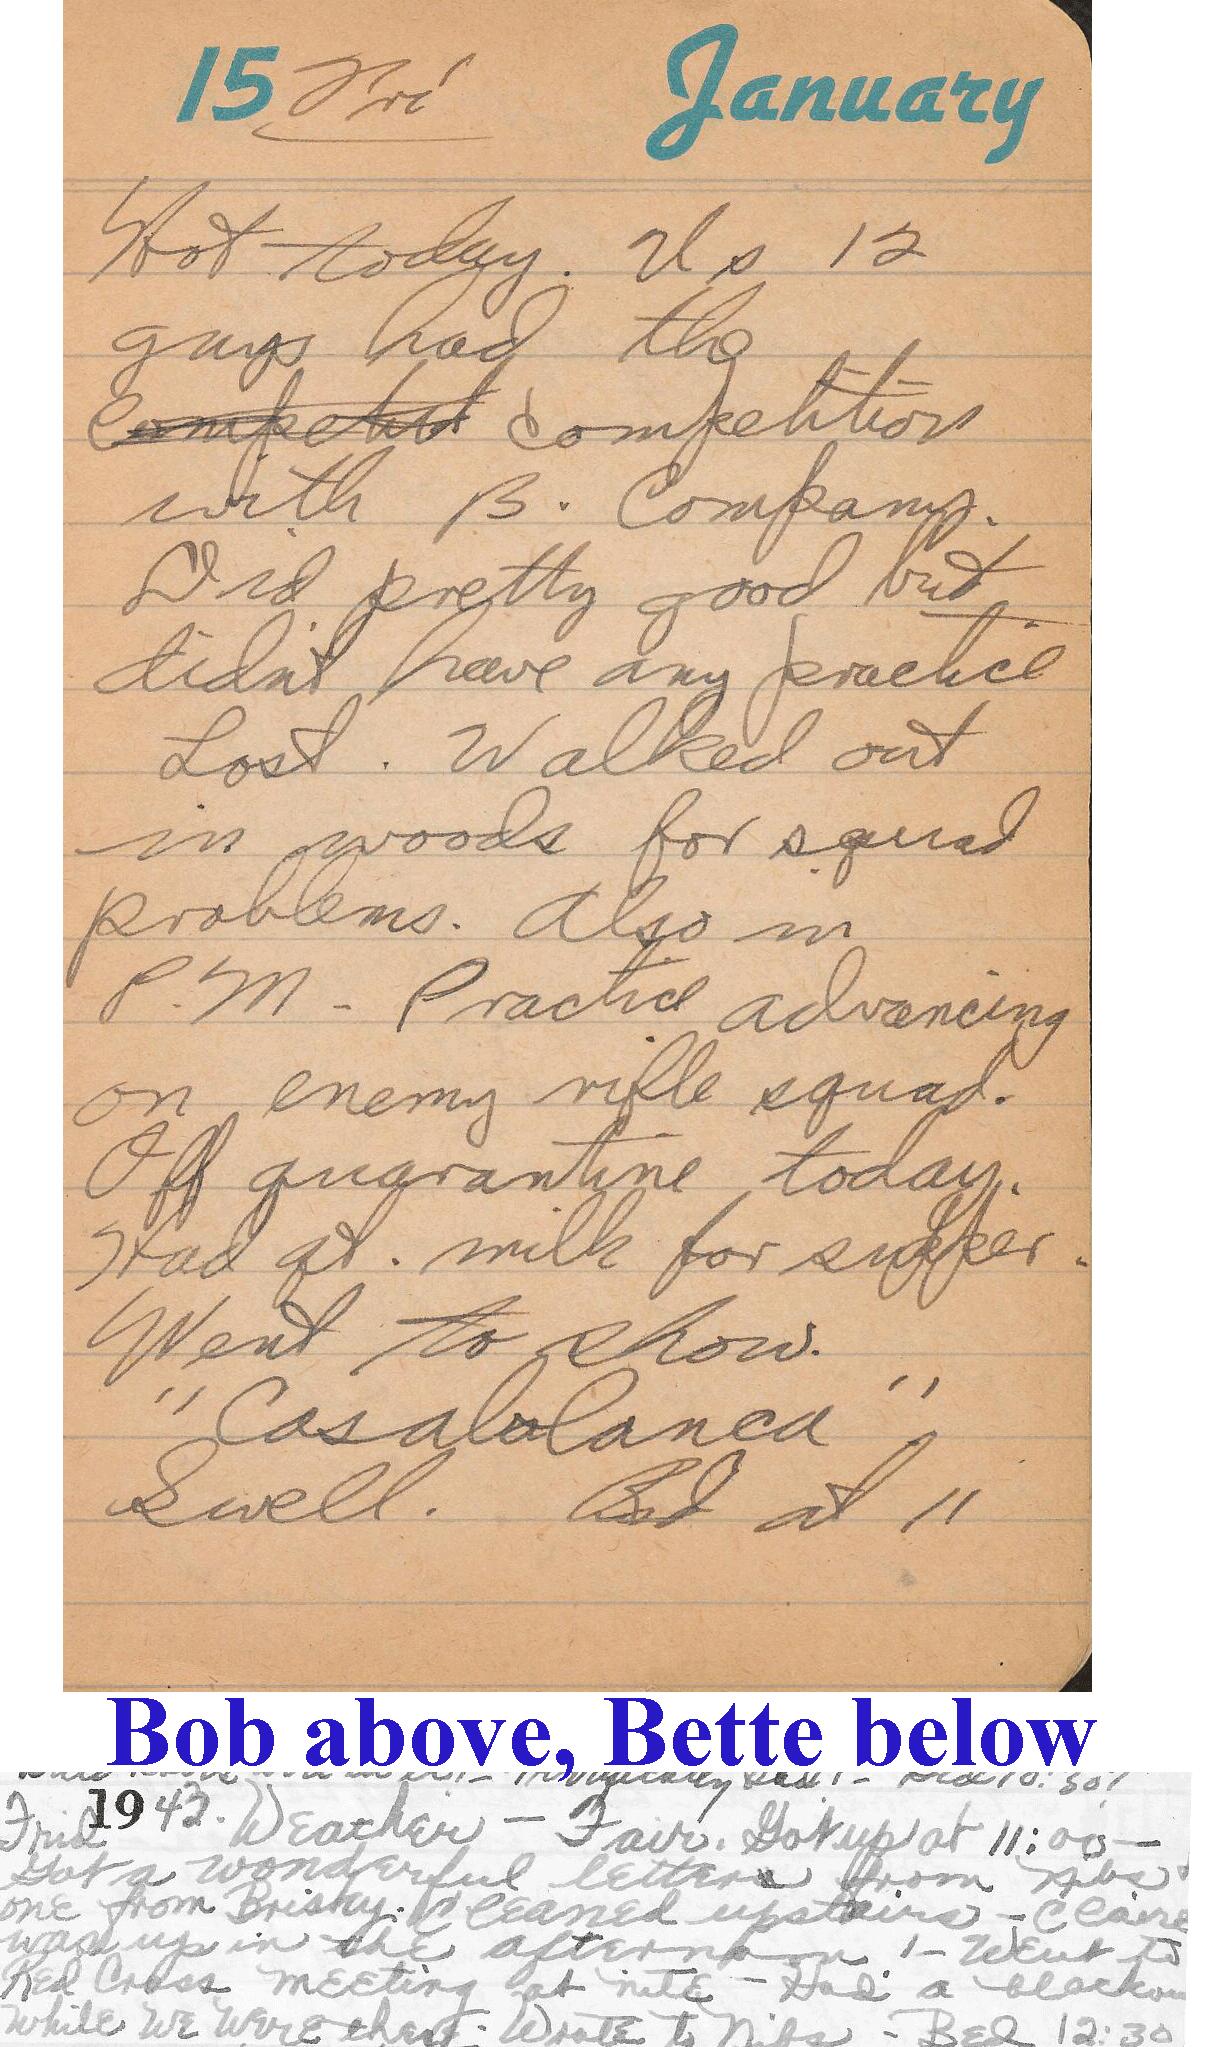 15 Fri January
Hot today. Us 12
guys had the
competit competition
with B. Company.
Did pretty good but
didnt have any practice
Lost. Walked out
in woods for squad
problems. Also in
P.M - Practice advancing
on enemy rifle squad.
Off quarantine today.
Had qt. milk for supper.
Went to show.
"Casablanca"
Swell. Bed at 11
Bob above, Bette below
Bed 10:30!
Frid 1943. Weather - Fair. Got up at 11:00 -
Got a wonderful letter from Nibs
one from Brisky. Cleaned upstairs - Claire
was up in the afternoon! - Went to
Red Cross meeting at nite - Had a blackou
while we were there. Wrote to Nibs - Bed 12:30